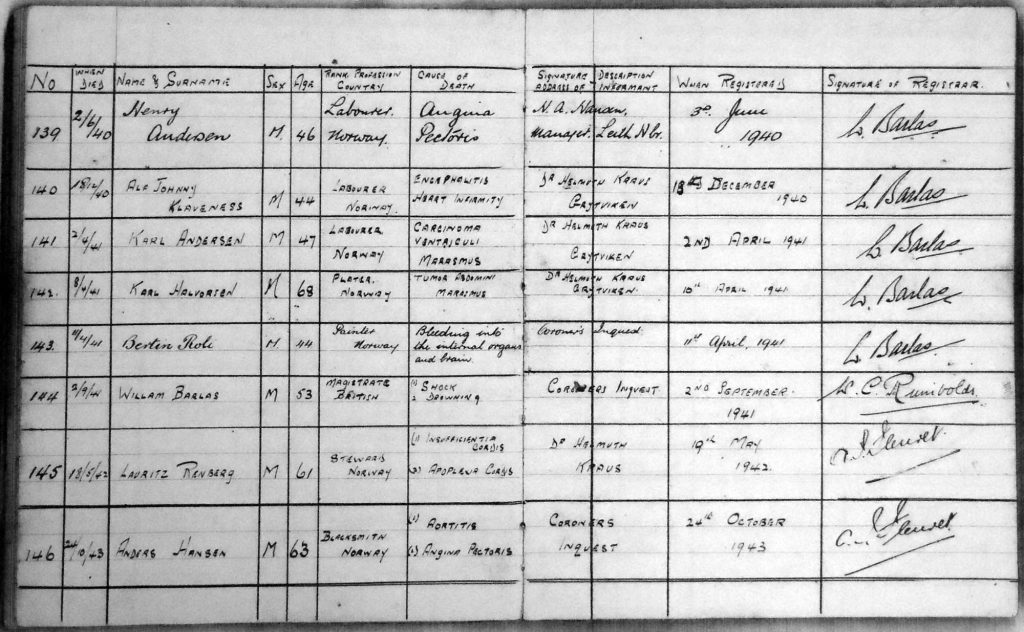 No WHEN DIED NAME & SURNAME SEX AGE RANK PROFESSION COUNTRY CAUSE OF DEATH SIGNATURE DESCRIPTION ADDRESS OF INFORMANT WHEN REGISTERED SIGNATURE OF REGISTRAR
139 2/6/40 Henry Andersen M 46 Labourer. Norway. Angina Pectoris N. A. Manager. Leith Hbr. 3rd June 1940 W. Barlas
140 18/12/40 ALF JOHNNY KLAVENESS M 44 LABOURER NORWAY. ENCEPHALITIS HEART INFIRMITY DR HELMUTH KRAUS GRYTVIKEN 18th DECEMBER 1940 W. Barlas
141 2/4/41 KARL ANDERSEN M 47 LABOURER NORWAY CARCINOMA VENTRICULI MARASMUS DR HELMUTH KRAUS GRYTVIKEN 2ND APRIL 1941 W. Barlas
142. 8/4/41 KARL HALVORSEN M 68 PLATER. NORWAY TUMOR ABDOMINI MARASMUS DR HELMUTH KRAUS GRYTVIKEN. 10th APRIL 1941 W. Barlas
143. 11/4/41 Bertin Roli M 44 Painter Norway Bleeding into the internal organs and brain. Coroner's Inquest 11th April, 1941 W. Barlas
144 2/9/41 WILLIAM BARLAS M 53 MAGISTRATE BRITISH (1) SHOCK 2 DROWNING CORONERS INQUEST 2ND SEPTEMBER. 1941 W. C. Rumbolds.
145 18/5/42 LAURITZ RENBERG M 61 STEWARD NORWAY (1) INSUFFICIENTIA CORDIS (2) APOPLEXIA CORDIS DR HELMUTH KRAUS 19th MAY 1942. Fleuret.
146 24/10/43 ANDERS HANSEN M 63 BLACKSMITH NORWAY (1) AORTITIS (2) ANGINA PECTORIS CORONERS INQUEST 24th OCTOBER 1943 Fleuret.